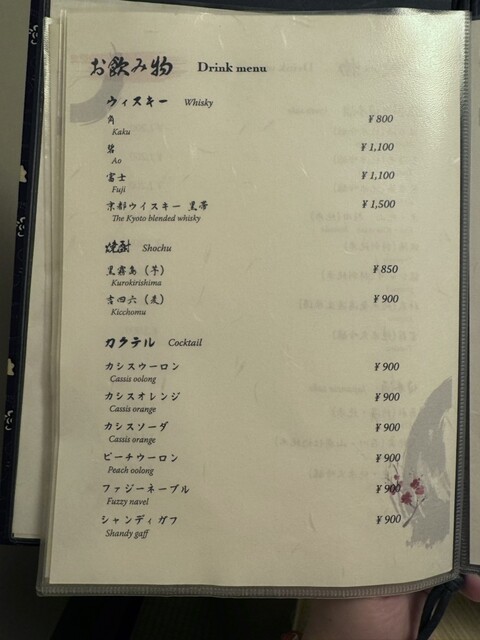 お飲み物 Drink menu
ウィスキー Whisky
角 ¥ 800
Kaku
碧 ¥ 1,100
Ao
富士 ¥ 1,100
Fuji
京都ウイスキー 黒帯 ¥ 1,500
The Kyoto blended whisky
焼酎 Shochu
黒霧島（芋） ¥ 850
Kurokirishima
吉四六（麦） ¥ 900
Kicchomu
カクテル Cocktail
カシスウーロン ¥ 900
Cassis oolong
カシスオレンジ ¥ 900
Cassis orange
カシスソーダ ¥ 900
Cassis orange
ピーチウーロン ¥ 900
Peach oolong
ファジーネーブル ¥ 900
Fuzzy navel
シャンディガフ ¥ 900
Shandy gaff